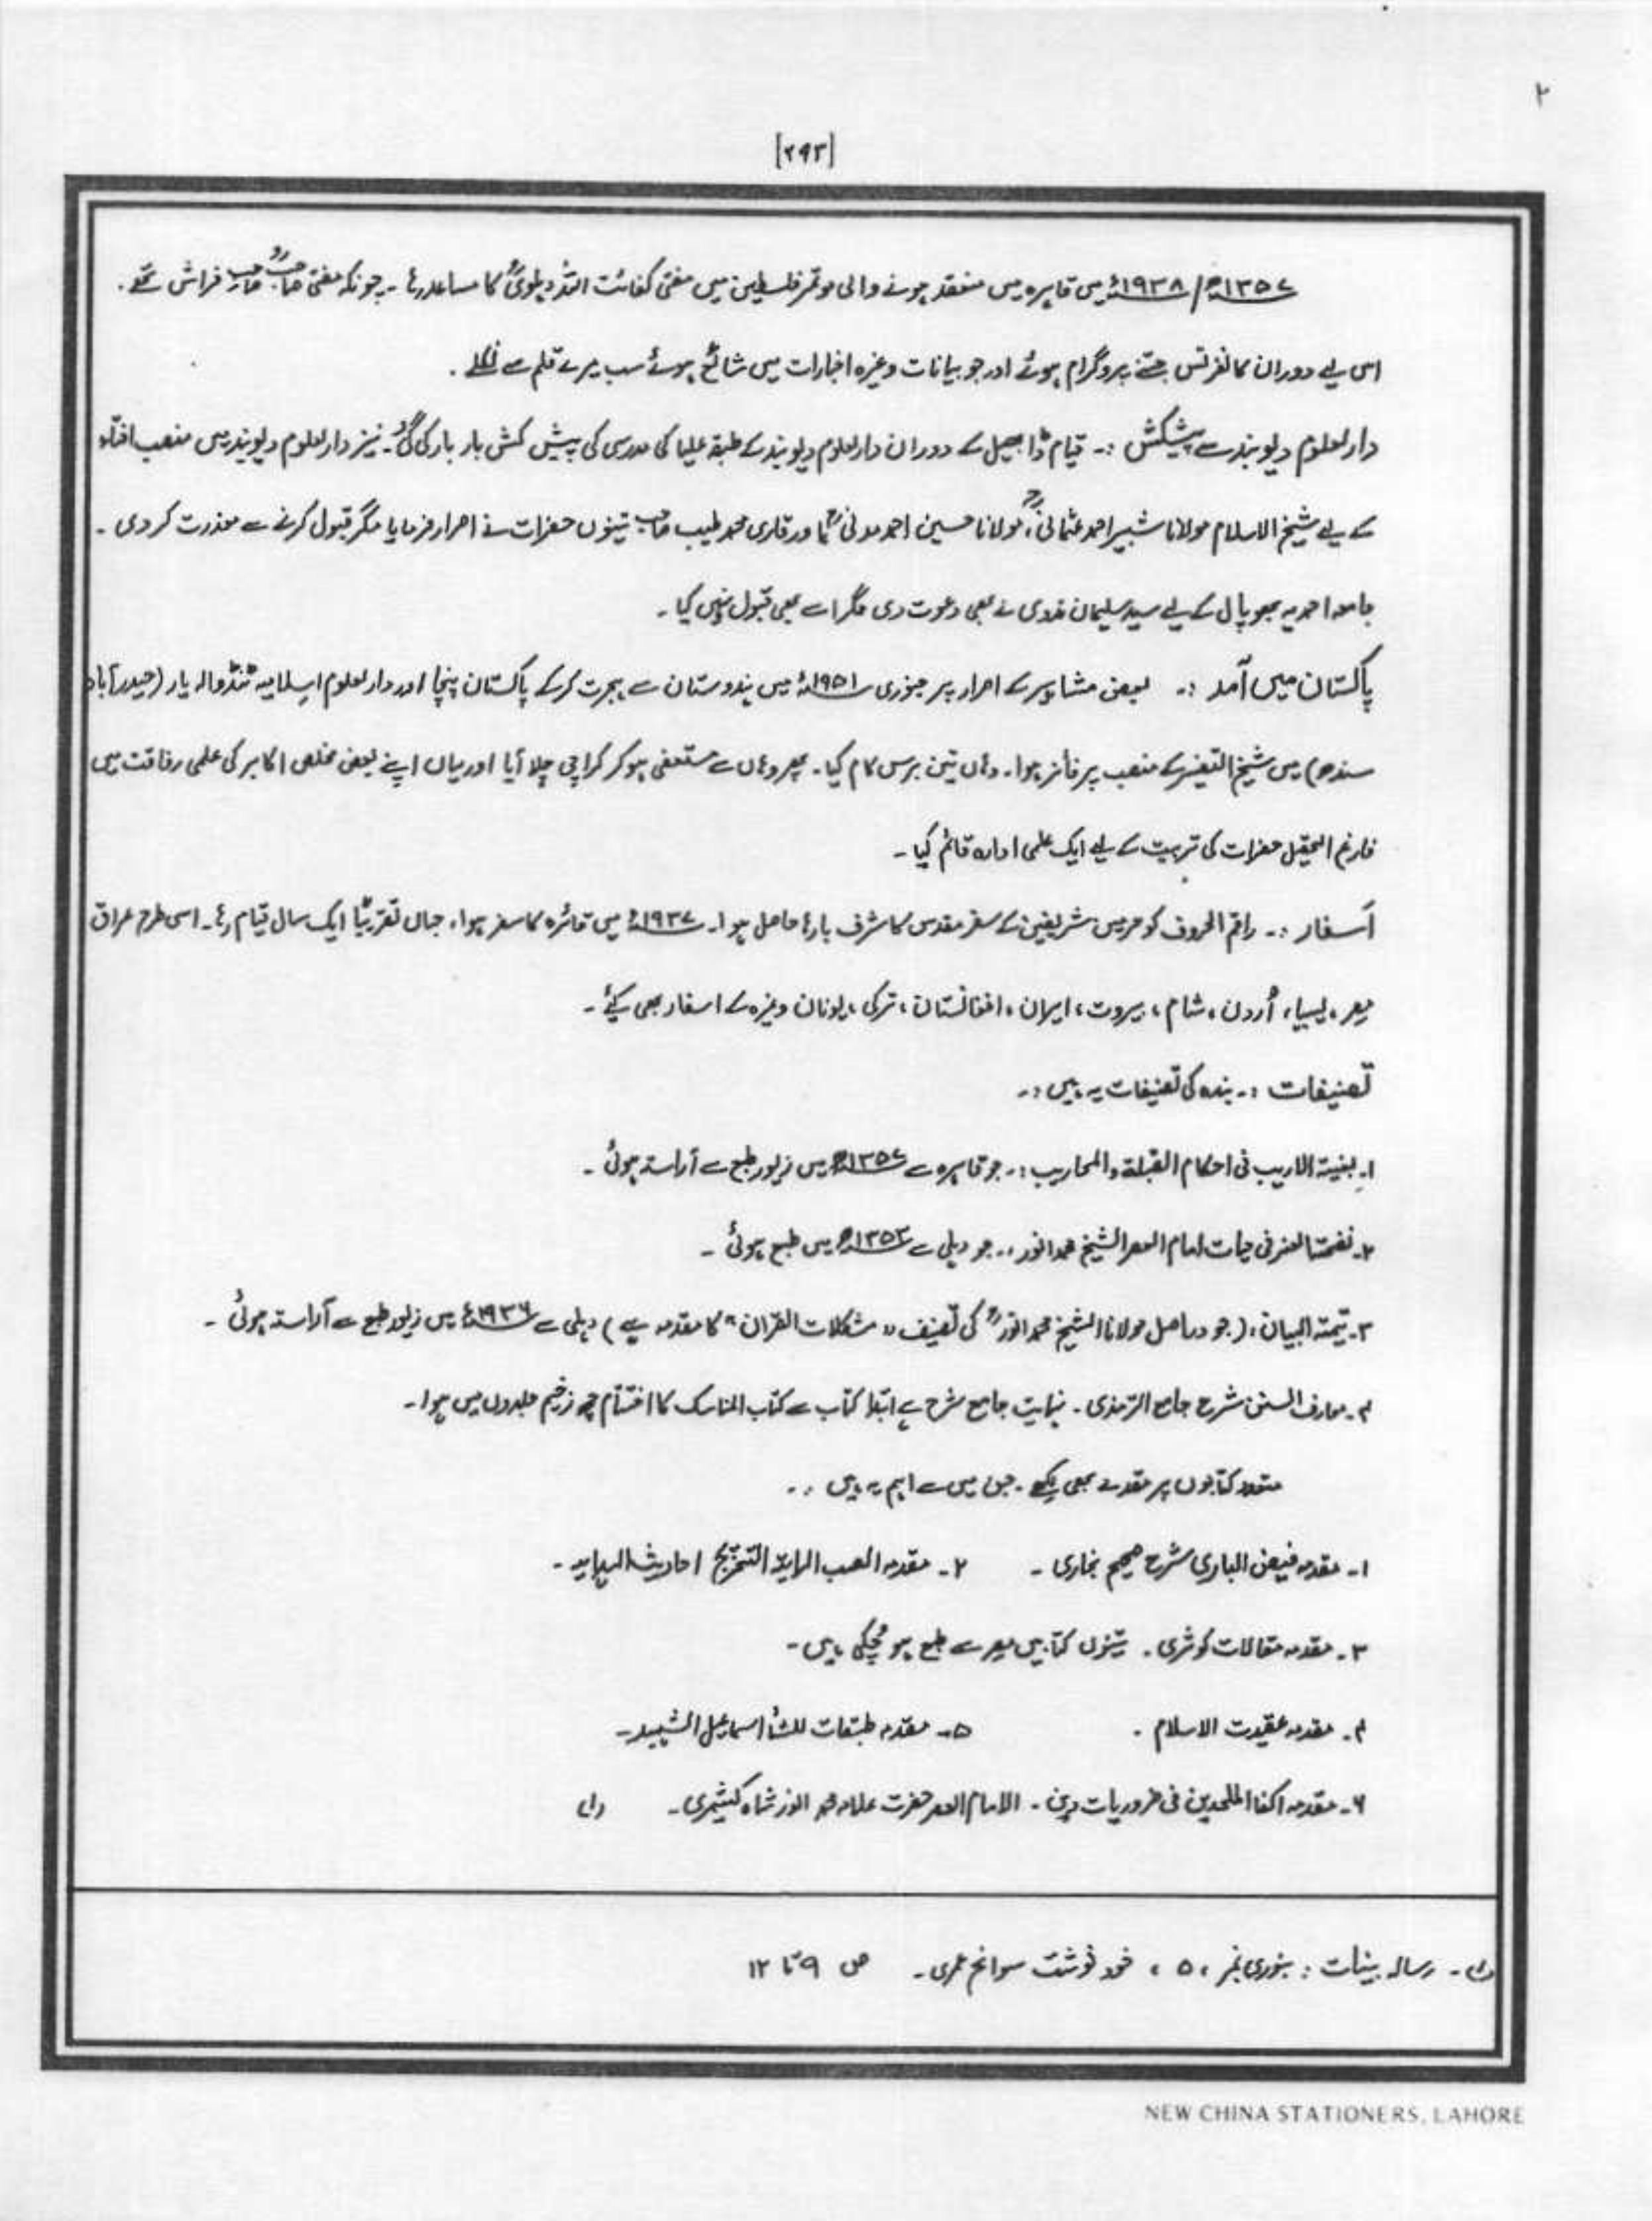 ۲
[۲۹۳]
۱۳۵۷ھ/۱۹۳۸ئ میں قاہرہ میں منعقد ہونے والی موتمر فلسطین میں مفتی کفائت اللہ دہلویؒ کا مساعد رہا ۔ چونکہ مفتی صاحبؒ صاحب فراش تھے ۔
اسی لیے دوران کانفرنس جتنے پروگرام ہوئے اور جو بیانات وغیرہ اخبارات میں شائع ہوئے سب میرے قلم سے نکلے ۔
دارلعلوم دیوبند سے پیشکش :۔ قیام ڈابھیل کے دوران دارلعلوم دیوبند کے طبقہ علیا کی مدرسی کی پیش کش بار بار کی گئی۔ نیز دارلعلوم دیوبند میں منصب افتاء
کے لیے شیخ الاسلام مولانا شبیر احمد عثمانیؒ، مولانا حسین احمد مدنیؒ اور قاری محمد طیب صاحب تینوں حضرات نے اصرار فرمایا مگر قبول کرنے سے معذرت کر دی ۔
جامعہ احمدیہ بھوپال کے لیے سید سلیمان ندوی نے بھی دعوت دی مگر اسے بھی قبول نہیں کیا ۔
پاکستان میں آمد :۔ بعض مشاہیر کے اصرار پر جنوری ۱۹۵۱ئ میں ہندوستان سے ہجرت کرکے پاکستان پہنچا اور دارلعلوم اسلامیہ ٹنڈوالہ یار (حیدرآباد
سندھ) میں شیخ التفسیر کے منصب پر فائز ہوا۔ وہاں تین برس کام کیا۔ پھر وہاں سے مستعفی ہو کر کراچی چلا آیا اور یہاں اپنے بعض مخلص اکابر کی علمی رفاقت میں
فارغ التحصیل حضرات کی تربیت کے لیے ایک علمی ادارہ قائم کیا ۔
اَسفار :۔ راقم الحروف کو حرمین شریفین کے سفر مقدس کا شرف بارہا حاصل ہوا۔ ۱۹۳۷ئ میں قائرہ کا سفر ہوا، جہاں تقریباً ایک سال قیام رہا۔ اسی طرح عراق
مصر، لیبیا، اُردن، شام، بیروت، ایران، افغانستان، ترکی، یونان وغیرہ کے اسفار بھی کیئے ۔
تصنیفات :۔ بندہ کی تصنیفات یہ ہیں :۔
۱۔ بغیتہ الاریب فی احکام القبلۃ والمحاریب :۔ جو قاہرہ سے ۱۳۵۷ھ میں زیور طبع سے آراستہ ہوئی ۔
۲۔ نفحتہ العنبر فی حیات امام العصر الشیخ محمد انور :۔ جو دہلی سے ۱۳۵۳ھ میں طبع ہوئی ۔
۳۔ یتیمتہ البیان : (جو دراصل مولانا الشیخ محمد انورؒ کی تصنیف "مشکلات القران" کا مقدمہ ہے) دہلی سے ۱۹۳۶ئ میں زیور طبع سے آراستہ ہوئی ۔
۴۔ معارف السنن شرح جامع الترمذی ۔ نہایت جامع شرح ہے ابتدا کتاب سے کتاب المناسک کا اختتام چھ ضخیم جلدوں میں ہوا۔
متعدد کتابوں پر مقدمے بھی لکھے ۔ جن میں سے اہم یہ ہیں :۔
۱۔ مقدمہ فیض الباری شرح صحیح بخاری ۔ ۲۔ مقدمہ العب الرایۃ التخریج احادیث الہدایہ ۔
۳۔ مقدمہ مقالات کوثری ۔ تینوں کتابیں مصر سے طبع ہو چکی ہیں ۔
۴۔ مقدمہ عقیدت الاسلام ۔ ۵۔ مقدمہ طبقات للشاہ اسماعیل الشہید ۔
۶۔ مقدمہ اکفا الملحدین فی ضروریات دین ۔ الامام العصر حضرت علامہ محمد انور شاہ کشمیری ۔ (۱)
(۱)۔ رسالہ بینات : بنوری نمبر، ۵ ، خود نوشت سوانح عمری ۔ ص ۹ تا ۱۲
NEW CHINA STATIONERS, LAHORE